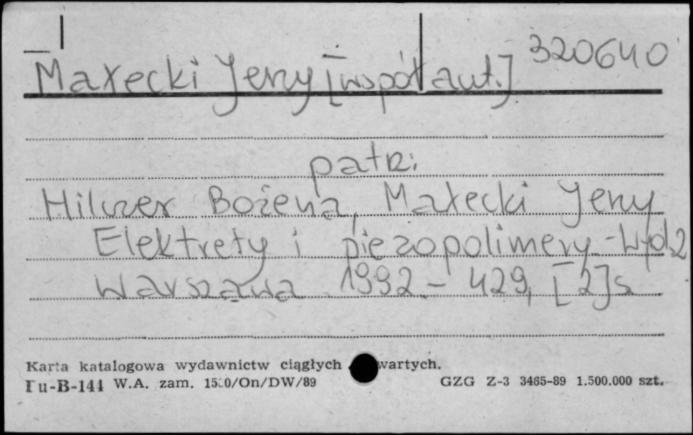 320640
Małecki Jerzy [współaut.]
patrz:
Hilczer Bożena, Małecki Jerzy
Elektrety i piezopolimery. - Wyd 2
Warszawa 1992 - 429, [2] s
Karta katalogowa wydawnictw ciągłych wartych.
Pu-B-141 W.A. zam. 15 0/On/DW/89 GZG Z-3 3465-89 1.500.000 szt.